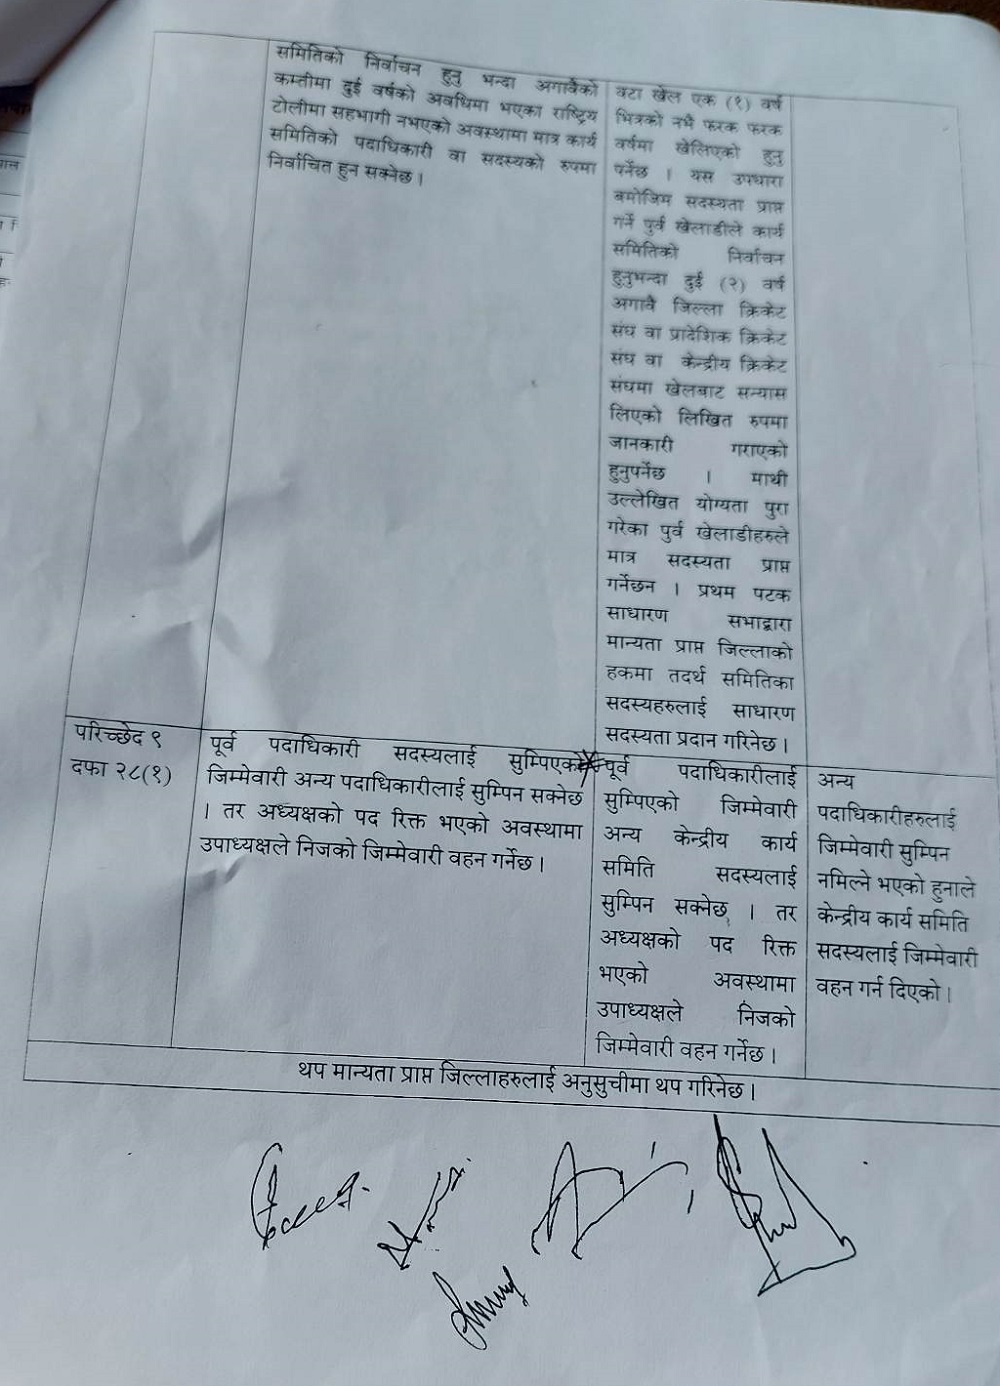 समितिको निर्वाचन हुनु भन्दा अगावैको
कम्तीमा दुई वर्षको अवधिमा भएका राष्ट्रिय
टोलीमा सहभागी नभएको अवस्थामा मात्र कार्य
समितिको पदाधिकारी वा सदस्यको रुपमा
निर्वाचित हुन सक्नेछ ।
वटा खेल एक (१) वर्ष
भित्रको नभै फरक फरक
वर्षमा खेलिएको हुनु
पर्नेछ । यस उपधारा
बमोजिम सदस्यता प्राप्त
गर्ने पुर्व खेलाडीले कार्य
समितिको निर्वाचन
हुनुभन्दा दुई (२) वर्ष
अगावै जिल्ला क्रिकेट
संघ वा प्रादेशिक क्रिकेट
संघ वा केन्द्रीय क्रिकेट
संघमा खेलबाट सन्यास
लिएको लिखित रुपमा
जानकारी गराएको
हुनुपर्नेछ । माथी
उल्लेखित योग्यता पुरा
गरेका पुर्व खेलाडीहरुले
मात्र सदस्यता प्राप्त
गर्नेछन । प्रथम पटक
साधारण सभाद्वारा
मान्यता प्राप्त जिल्लाको
हकमा तदर्थ समितिका
सदस्यहरुलाई साधारण
सदस्यता प्रदान गरिनेछ ।
परिच्छेद ९
दफा २८(१)
पूर्व पदाधिकारी सदस्यलाई सुम्पिएको
जिम्मेवारी अन्य पदाधिकारीलाई सुम्पिन सक्नेछ
। तर अध्यक्षको पद रिक्त भएको अवस्थामा
उपाध्यक्षले निजको जिम्मेवारी वहन गर्नेछ ।
पूर्व पदाधिकारीलाई
सुम्पिएको जिम्मेवारी
अन्य केन्द्रीय कार्य
समिति सदस्यलाई
सुम्पिन सक्नेछ । तर
अध्यक्षको पद रिक्त
भएको अवस्थामा
उपाध्यक्षले निजको
जिम्मेवारी वहन गर्नेछ ।
अन्य
पदाधिकारीहरुलाई
जिम्मेवारी सुम्पिन
नमिल्ने भएको हुनाले
केन्द्रीय कार्य समिति
सदस्यलाई जिम्मेवारी
वहन गर्न दिएको ।
थप मान्यता प्राप्त जिल्लाहरुलाई अनुसुचीमा थप गरिनेछ ।